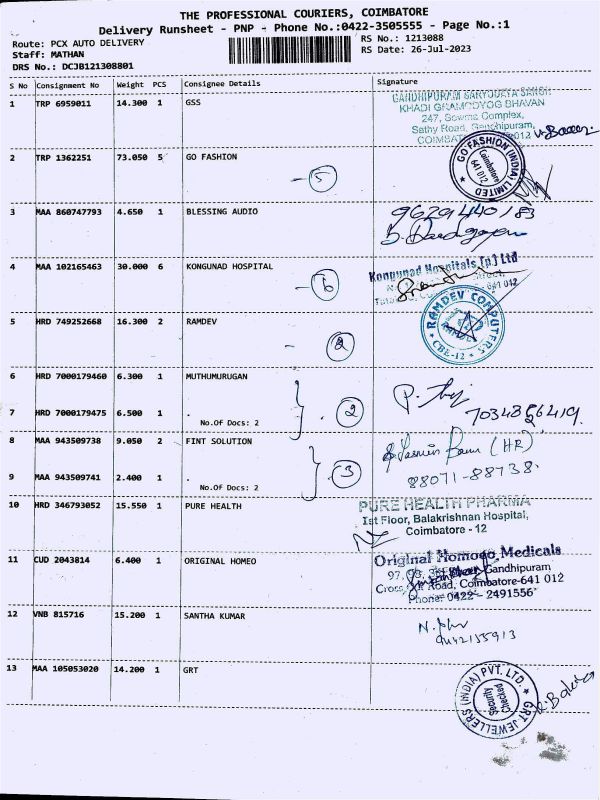 THE PROFESSIONAL COURIERS, COIMBATORE
Delivery Runsheet - PNP - Phone No.:0422-3505555 - Page No.:1
Route: PCX AUTO DELIVERY
RS No.: 1213088
Staff: MATHAN
RS Date: 26-Jul-2023
DRS No.: DCJB121308801
S No Consignment No Weight PCS Consignee Details Signature
1 TRP 6959011 14.300 1 GSS
GANDHIPURAM SARVODAYA SANGH
KHADI GRAMODYOG BHAVAN
247, Gowms Complex,
Sathy Road, Gandhipuram,
2 TRP 1362251 73.050 5 GO FASHION
5
GO FASHION (INDIA) LIMITED
Coimbatore
641 012
3 MAA 860747793 4.650 1 BLESSING AUDIO
4 MAA 102165463 30.000 6 KONGUNAD HOSPITAL
6
Kongunad Hospitals [p] Ltd
641 012
5 HRD 749252668 16.300 2 RAMDEV
2
RAMDEV COMPUTERS
RAMDEV
CBE-12
6 HRD 7000179460 6.300 1 MUTHUMURUGAN
7 HRD 7000179475 6.500 1 .
No.Of Docs: 2
2
8 MAA 943509738 9.050 2 FINT SOLUTION
(HR)
88071-88738.
9 MAA 943509741 2.400 1 .
No.Of Docs: 2
3
10 HRD 346793052 15.550 1 PURE HEALTH
PURE HEALTH PHARMA
Ist Floor, Balakrishnan Hospital,
Coimbatore - 12
11 CUD 2043814 6.400 1 ORIGINAL HOMEO
Original Homoeo Medicals
Gandhipuram
Road, Coimbatore-641 012
Phone: 0422 - 2491556
12 VNB 815716 15.200 1 SANTHA KUMAR
13 MAA 105053020 14.200 1 GRT
GRT JEWELLERS (INDIA) PVT. LTD.
Security
Checked